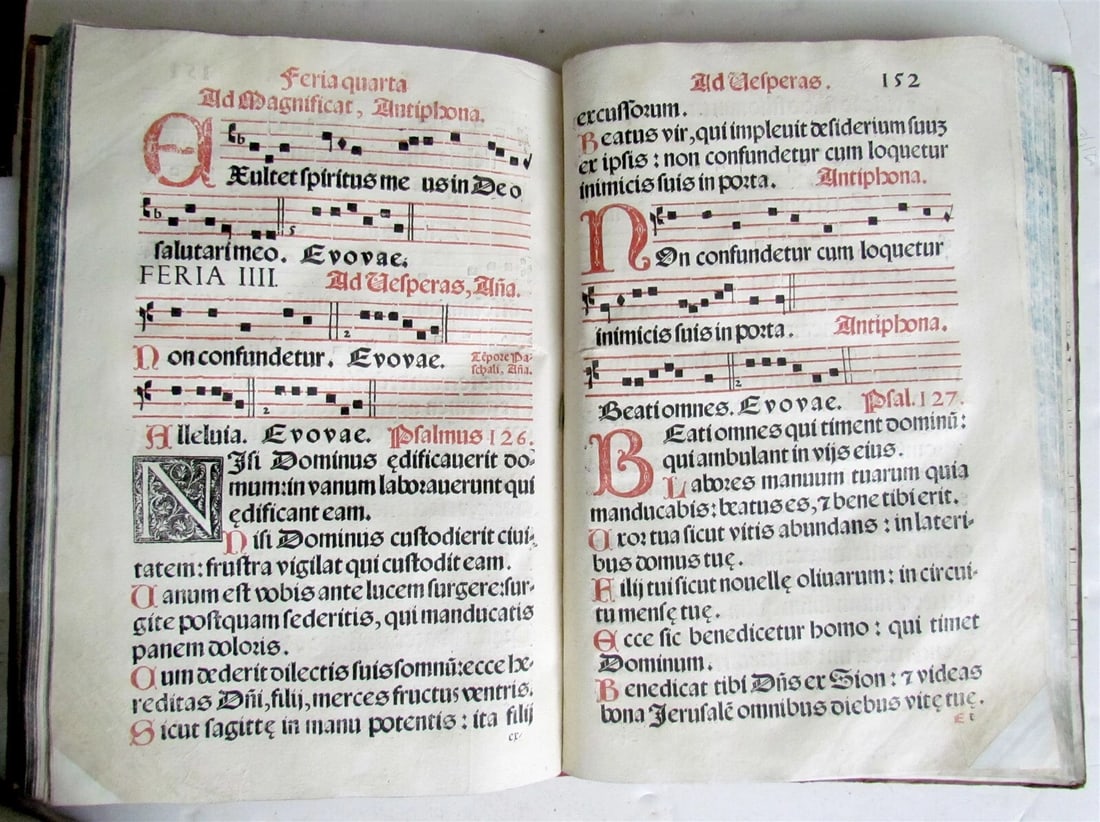 Feria quarta
Ad Magnificat, Antiphona.
EXultet spiritus me us in Deo
salutari meo. Evovae.
FERIA IIII. Ad Vesperas, Aña.
Non confundetur. Evovae. Tẽpore Pa-
schali, Aña.
Alleluia. Evovae. Psalmus 126.
NIsi Dominus ędificauerit do-
mum: in vanum laborauerunt qui
ędificant eam.
Nisi Dominus custodierit ciui-
tatem: frustra vigilat qui custodit eam.
Vanum est vobis ante lucem surgere: sur-
gite postquam sederitis, qui manducatis
panem doloris.
Cum dederit dilectis suis somnũ: ecce he-
reditas Dñi, filij, merces fructus ventris.
Sicut sagittę in manu potentis: ita filij
ex-
Ad Vesperas. 152
excussorum.
Beatus vir, qui impleuit desiderium suuʒ
ex ipsis: non confundetur cum loquetur
inimicis suis in porta. Antiphona.
NOn confundetur cum loquetur
inimicis suis in porta. Antiphona.
Beati omnes. Evovae. Psal. 127.
BEati omnes qui timent dominũ:
qui ambulant in vijs eius.
Labores manuum tuarum quia
manducabis: beatus es, ⁊ bene tibi erit.
Vxor tua sicut vitis abundans: in lateri-
bus domus tuę.
Filij tui sicut nouellę oliuarum: in circui-
tu mensę tuę.
Ecce sic benedicetur homo: qui timet
Dominum.
Benedicat tibi Dñs ex Sion: ⁊ videas
bona Jerusalẽ omnibus diebus vitę tuę.
Et